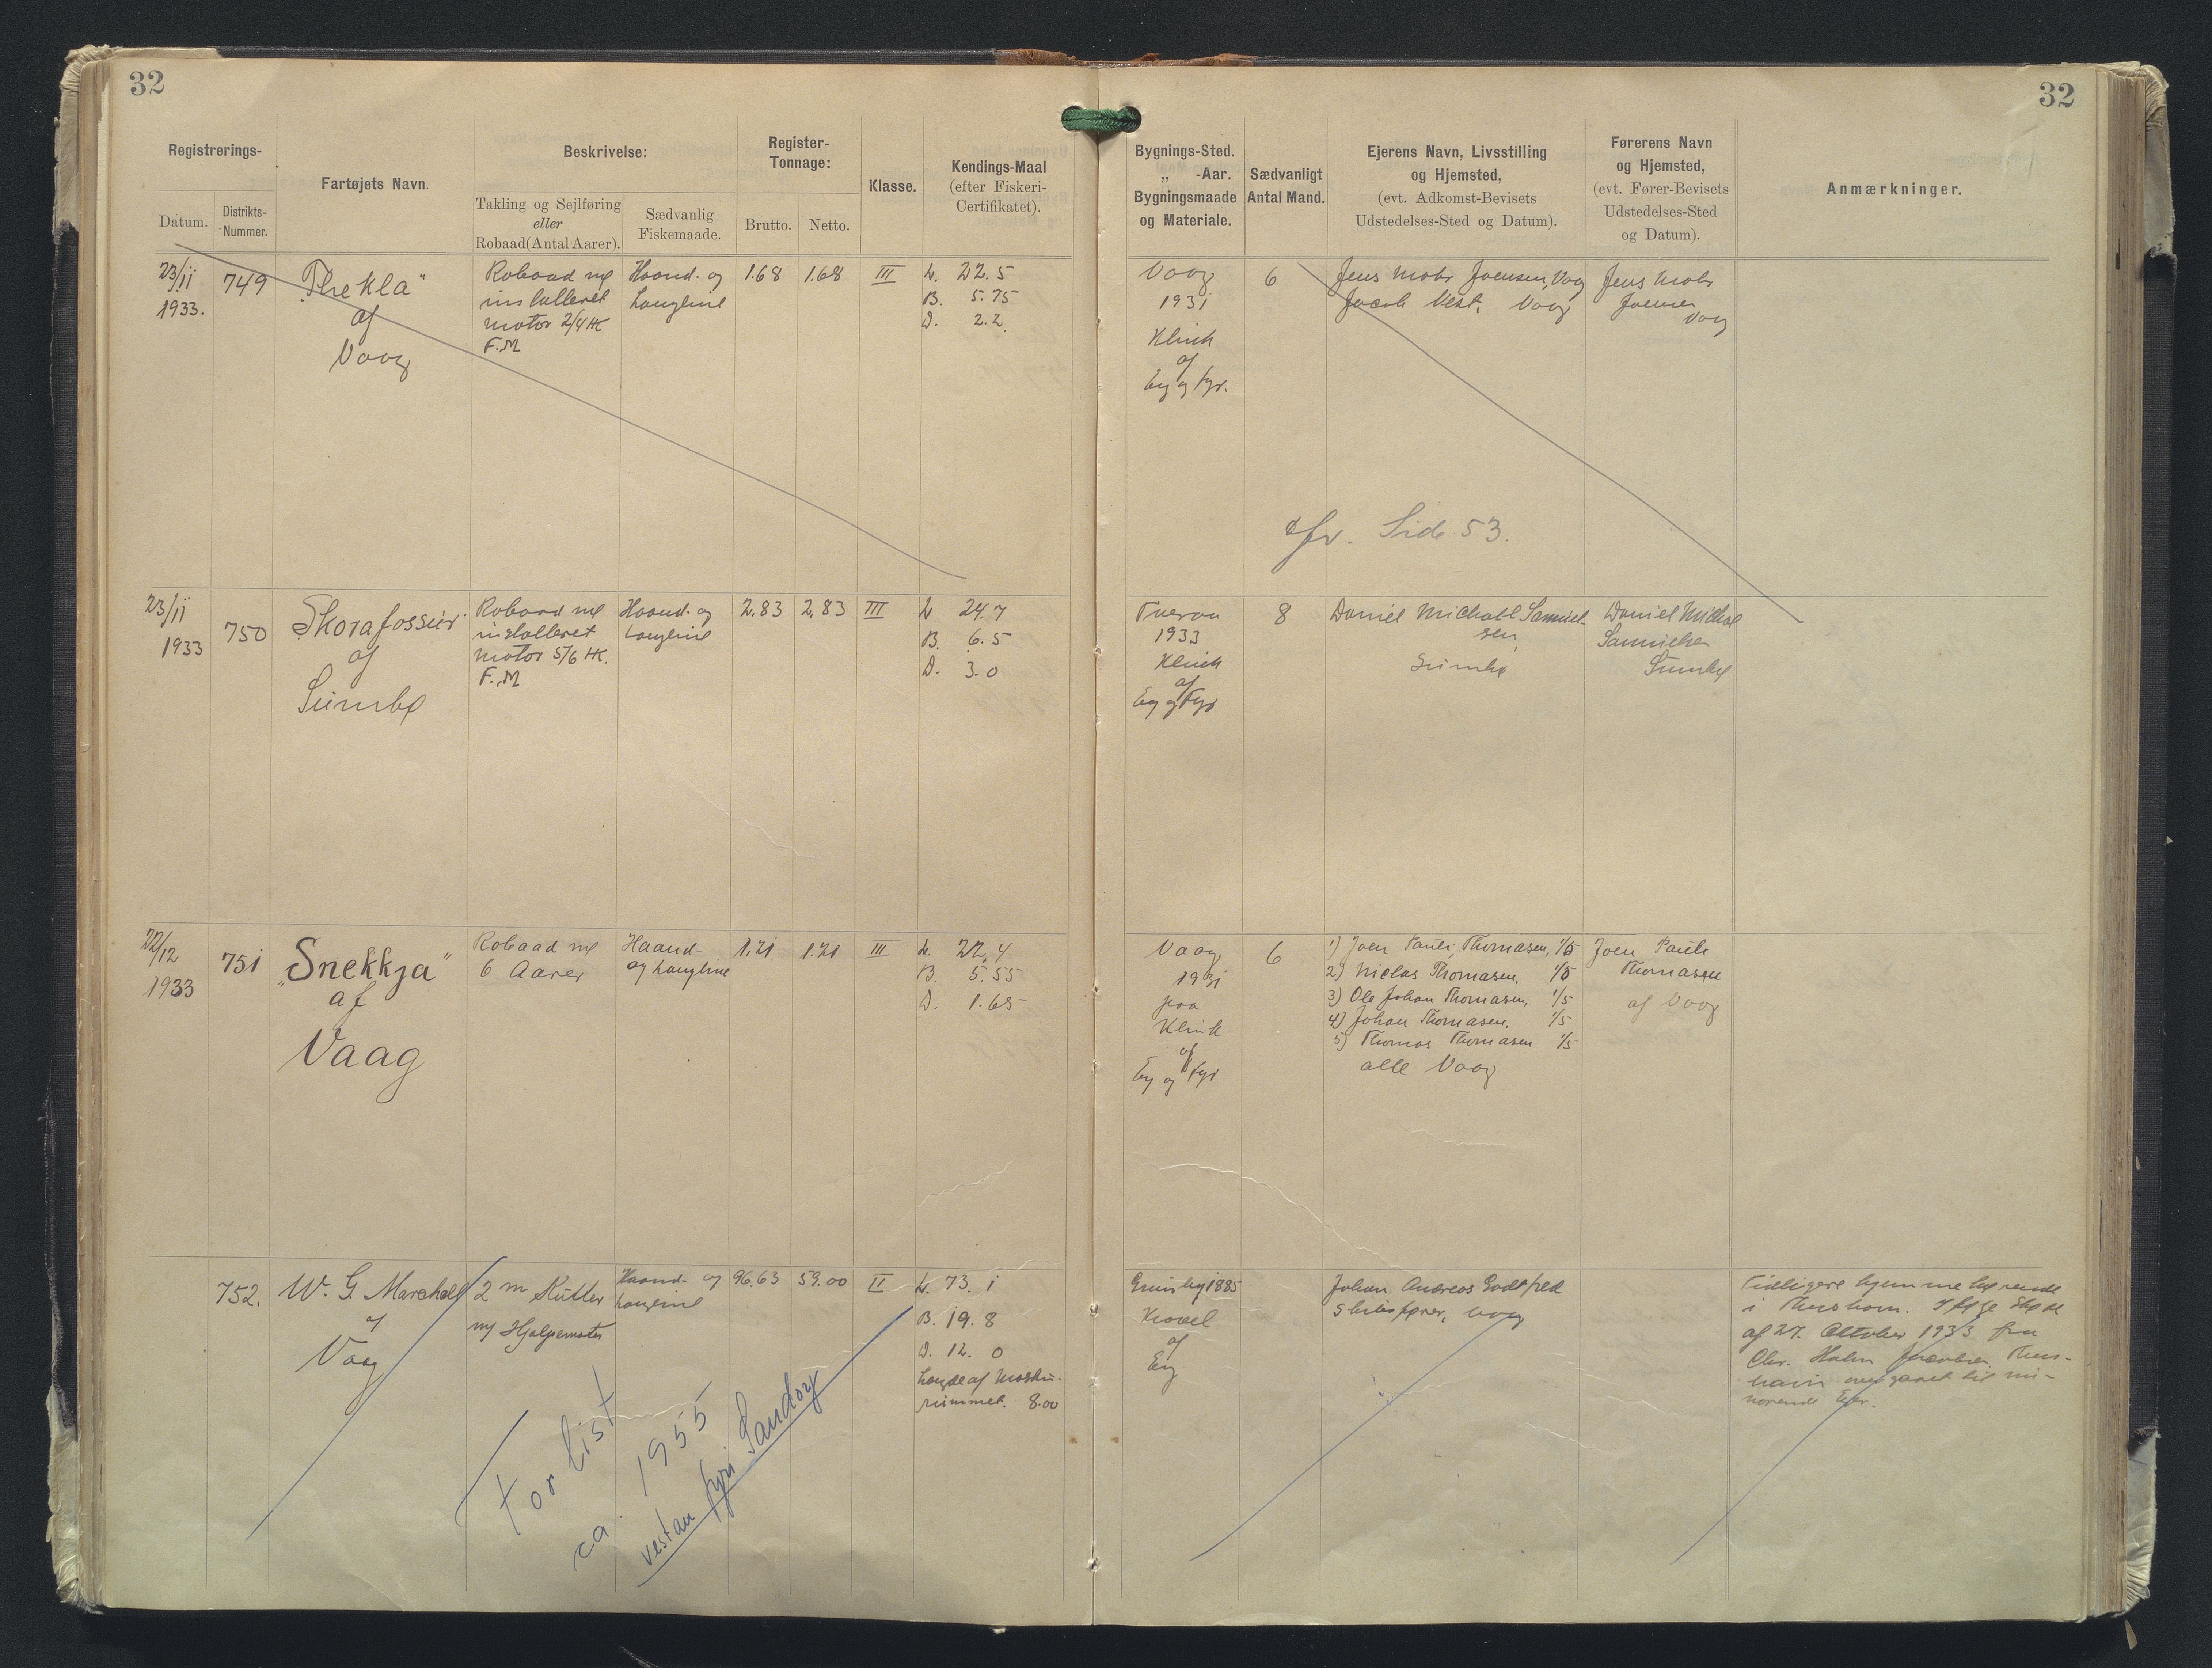 32
32
Registrerings-
Datum.
Distrikts-
Nummer.
Fartøjets Navn.
Beskrivelse:
Takling og Sejlføring
eller
Robaad (Antal Aarer).
Sædvanlig
Fiskemaade.
Register-
Tonnage:
Brutto.
Netto.
Klasse.
Kendings-Maal
(efter Fiskeri-
Certifikatet).
Bygnings-Sted.
„ -Aar.
Bygningsmaade
og Materiale.
Sædvanligt
Antal Mand.
Ejerens Navn, Livsstilling
og Hjemsted,
(evt. Adkomst-Bevisets
Udstedelses-Sted og Datum).
Førerens Navn
og Hjemsted,
(evt. Fører-Bevisets
Udstedelses-Sted
og Datum).
Anmærkninger.
23/11
1933.
749
„Thekla"
af
Vaag
Robaad m/
installeret
motor 2/4 HK
F.M
Haand- og
Langline
1.68
1.68
III
L. 22.5
B. 5.75
D. 2.2
Vaag
1931
Klink
af
Eg og Fyr.
6
Jens Mohr Joensen, Vaag
Jacob Vest, Vaag
Jens Mohr
Joensen
Vaag
cfr. Side 53.
23/11
1933
750
Skorafossur
af
Sumbø
Robaad m/
installeret
motor 5/6 HK.
F.M
Haand- og
Langline
2.83
2.83
III
L 24.7
B. 6.5
D. 3.0
Tveraa
1933
Klink
af
Eg og Fyr
8
Daniel Michael Samuel-
sen,
Sumbø
Daniel Michael
Samuelsen
Sumbø
22/12
1933
751
„Snekkja"
af
Vaag
Robaad m/
6 Aarer
Haand-
og Langline
1.21
1.21
III
L. 22.4
B. 5.55
D. 1.65
Vaag
1931
paa
Klink
af
Eg og Fyr
6
1) Joen Pauli Thomasen, 1/5
2) Niclas Thomasen, 1/5
3) Ole Johan Thomasen, 1/5
4) Johan Thomasen, 1/5
5) Thomas Thomasen 1/5
alle Vaag
Joen Pauli
Thomasen
af Vaag
752.
W. G. Marshall
af
Vaag
2 m Kutter
m/ Hjælpemotor
Haand- og
Langline
96.63
59.00
II
L. 73. 1
B. 19. 8
D. 12. 0
Længde af Maskin-
rummet. 8.00
Grimsby 1885
Kravel
af
Eg
Johan Andreas Godtfred
Skibsfører, Vaag
Tidligere hjemmehørende
i Thorshavn. Ifølge Skøde
af 27. Oktober 1933 fra
Chr. Holm Jacobsen, Thors-
havn overgaaet til nu-
værende Ejer.
Forlist
ca. 1955
vestan fyri Sandoy